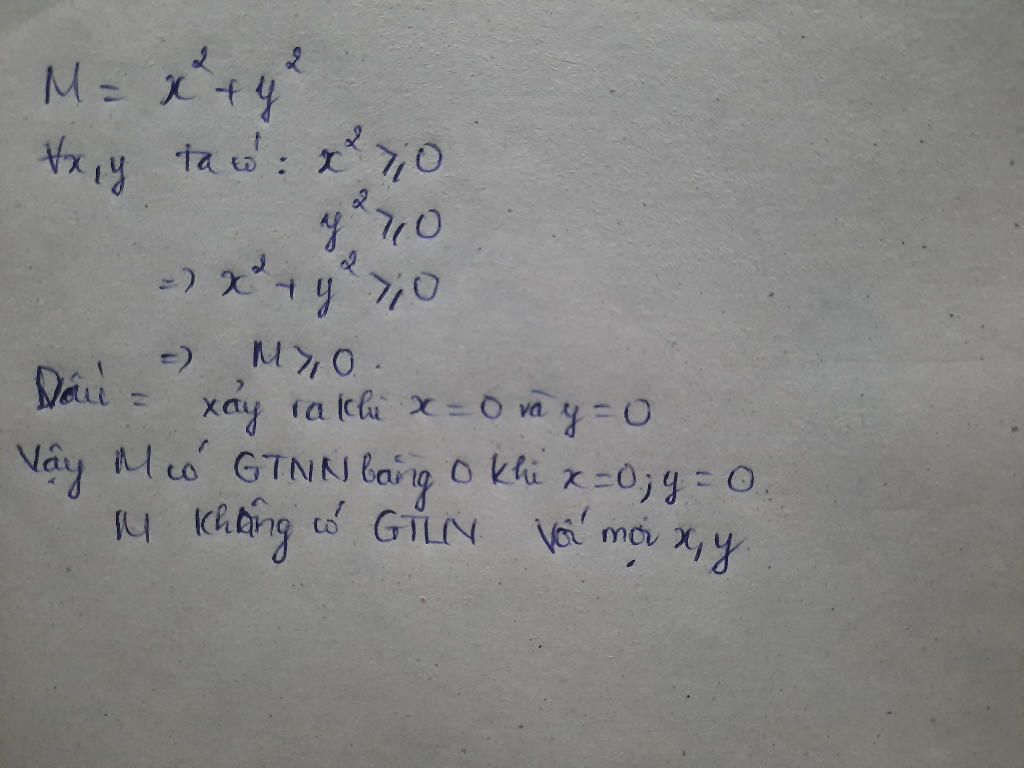 M = x² + y²
∀x,y ta có: x² ≥ 0
y² ≥ 0
=> x² + y² ≥ 0
=> M ≥ 0.
Dấu = xảy ra khi x = 0 và y = 0
Vậy M có GTNN bằng 0 khi x = 0; y = 0
M không có GTLN với mọi x, y